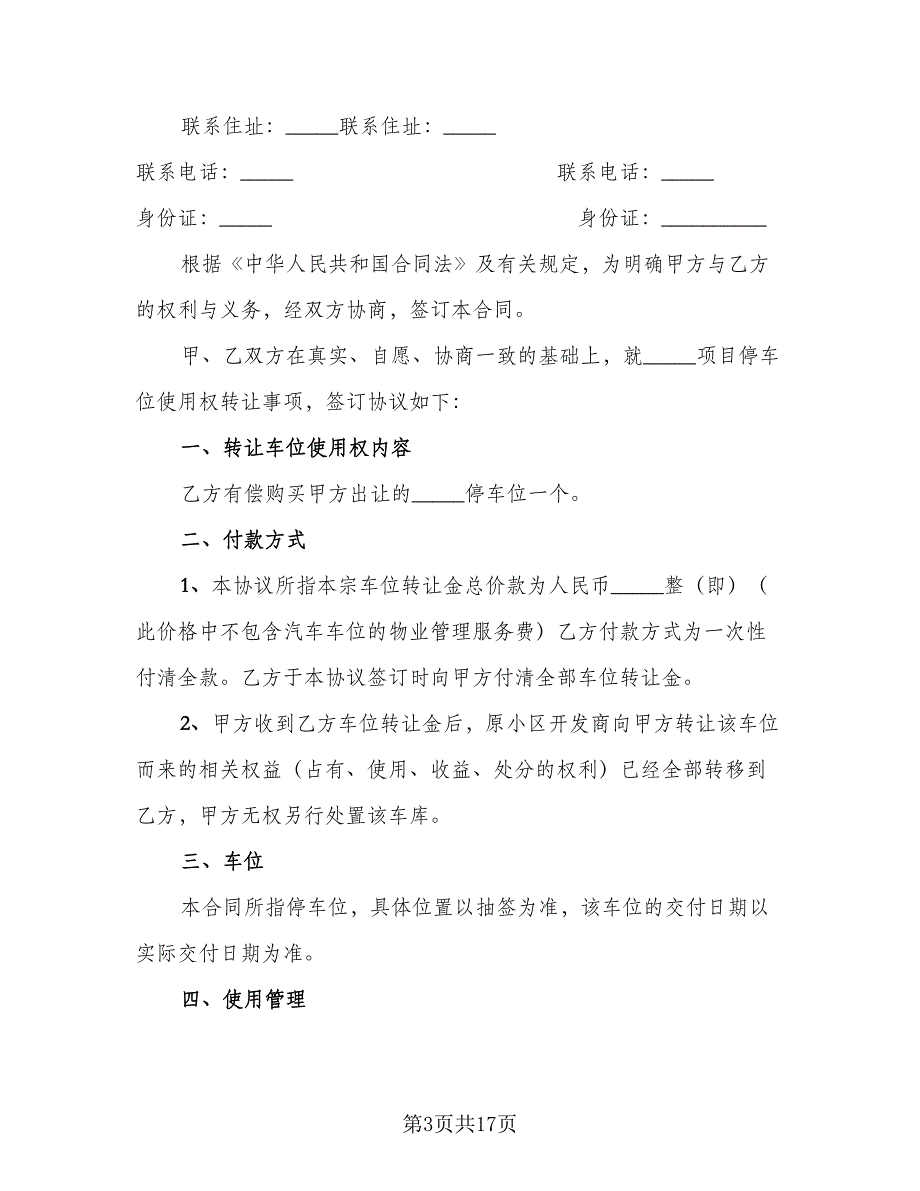 联系住址：_____联系住址：_____
联系电话：_____ 联系电话：_____
身份证：_____ 身份证：__________
根据《中华人民共和国合同法》及有关规定，为明确甲方与乙方
的权利与义务，经双方协商，签订本合同。
甲、乙双方在真实、自愿、协商一致的基础上，就_____项目停车
位使用权转让事项，签订协议如下：
一、转让车位使用权内容
乙方有偿购买甲方出让的_____停车位一个。
二、付款方式
1、本协议所指本宗车位转让金总价款为人民币_____整（即）（
此价格中不包含汽车车位的物业管理服务费）乙方付款方式为一次性
付清全款。乙方于本协议签订时向甲方付清全部车位转让金。
2、甲方收到乙方车位转让金后，原小区开发商向甲方转让该车位
而来的相关权益（占有、使用、收益、处分的权利）已经全部转移到
乙方，甲方无权另行处置该车库。
三、车位
本合同所指停车位，具体位置以抽签为准，该车位的交付日期以
实际交付日期为准。
四、使用管理
第3页共17页